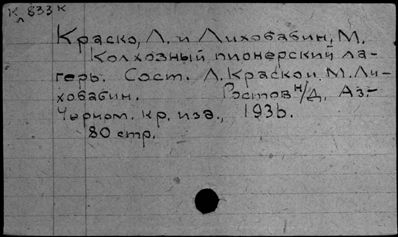 К 833 к
Краско, Л. и Лихобабин, М.
Колхозный пионерский ла-
герь. Сост. Л. Краской, М. Ли-
хобабин. Ростов н/Д, Аз.-
Черном. кр. изд., 1936.
80 стр.